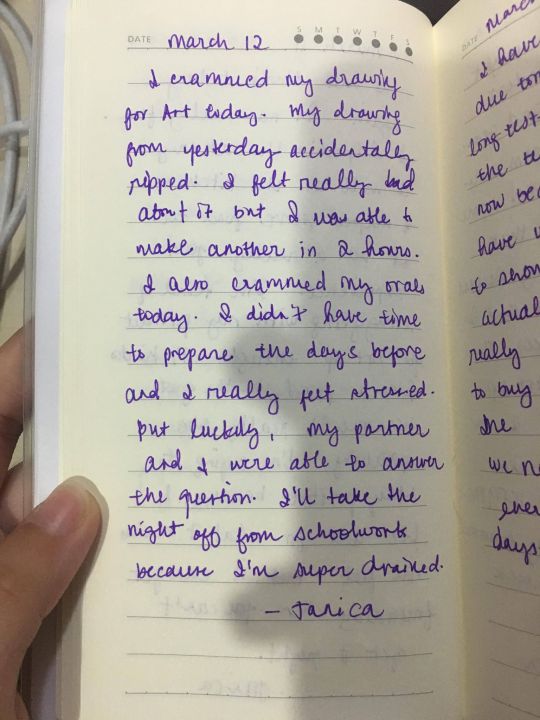 DATE March 12 S M T W T F S
I crammed my drawing
for Art today. My drawing
from yesterday accidentally
ripped. I felt really bad
about it but I was able to
make another in 2 hours.
I also crammed my orals
today. I didn't have time
to prepare the days before
and I really felt stressed.
But luckily, my partner
and I were able to answer
the question. I'll take the
night off from schoolwork
because I'm super drained.
— Janica
DATE March
I have
due tom
long test
the te
now bec
have
to show
actual
really
to buy
the
we n
ever
days